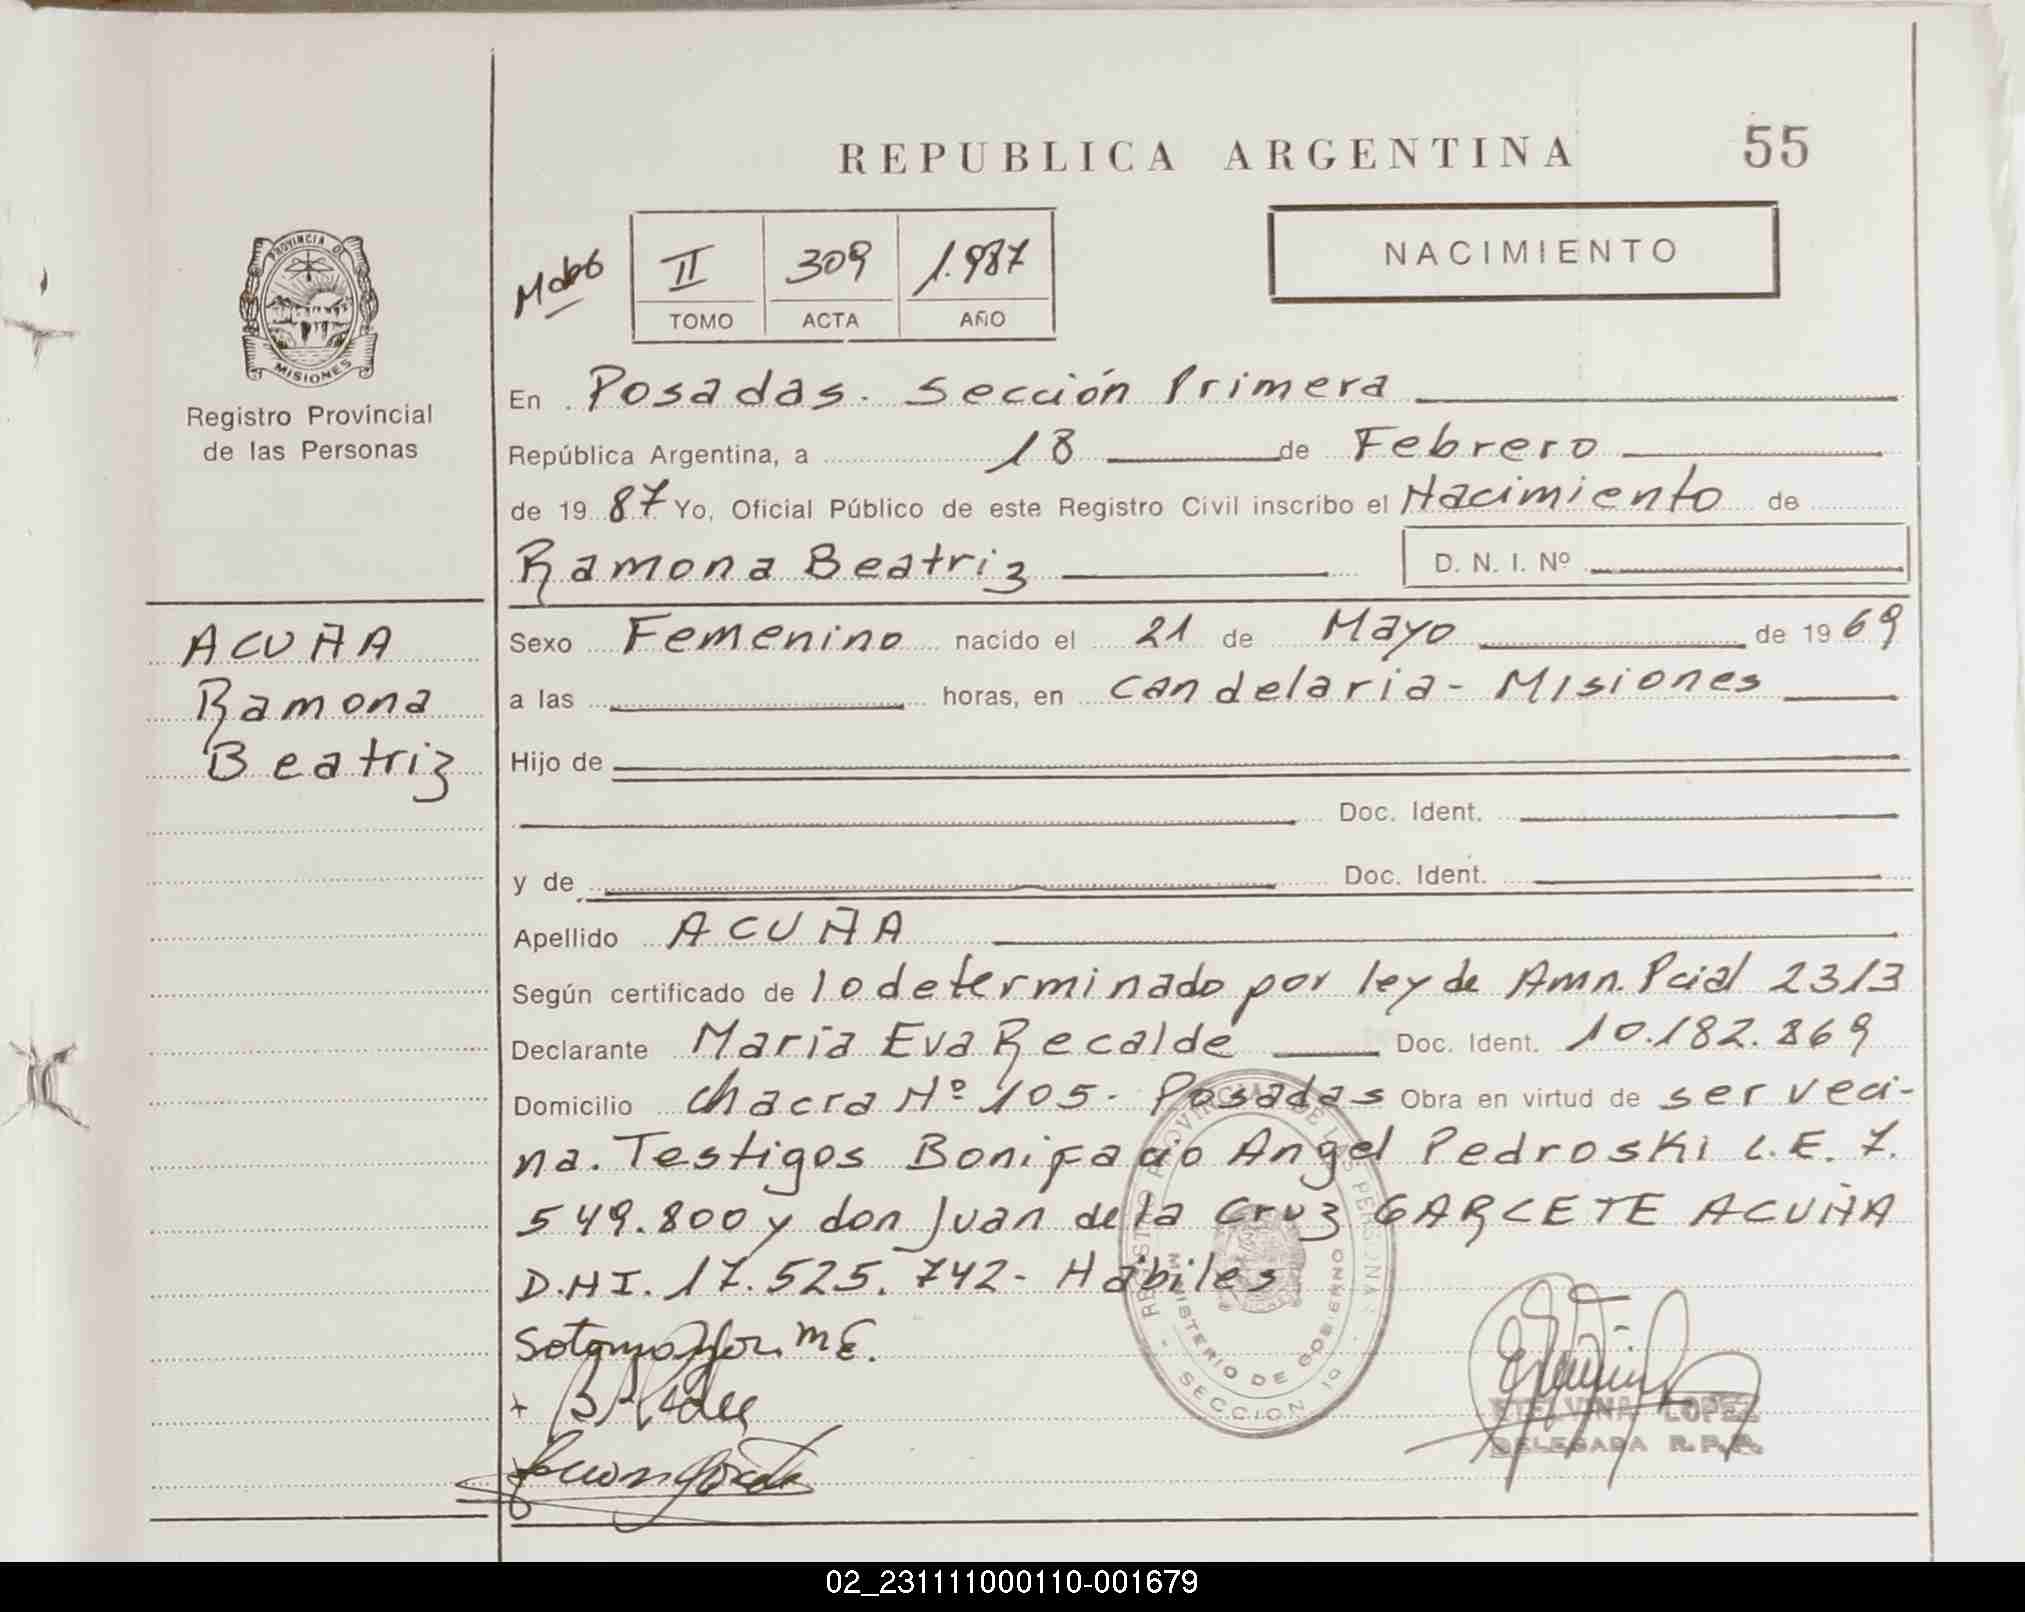 REPUBLICA ARGENTINA
55
PROVINCIA DE
MISIONES
Registro Provincial
de las Personas
II 309 1.987
TOMO ACTA AÑO
NACIMIENTO
En Posadas. Sección Primera
República Argentina, a 18 de Febrero
de 1987 Yo, Oficial Público de este Registro Civil inscribo el Nacimiento de
Ramona Beatriz D. N. I. Nº
ACUÑA
Ramona
Beatriz
Sexo Femenino nacido el 21 de Mayo de 1969
a las horas, en Candelaria - Misiones
Hijo de
Doc. Ident.
y de Doc. Ident.
Apellido ACUÑA
Según certificado de lo determinado por ley de Amn. Pcial 2313
Declarante María Eva Recalde Doc. Ident. 10.182.869
Domicilio Chacra Nº 105. Posadas Obra en virtud de ser veci-
na. Testigos Bonifacio Angel Pedroski L.E. 7.
549.800 y don Juan de la Cruz GARCETE ACUÑA
D.N.I. 17.525.742 - Hábiles
REGISTRO PROVINCIAL DE LAS PERSONAS
MINISTERIO DE GOBIERNO
SECCION 1a
Sotomayor M E.
ETELVINA LOPEZ
DELEGADA R.P.P.
02_231111000110-001679